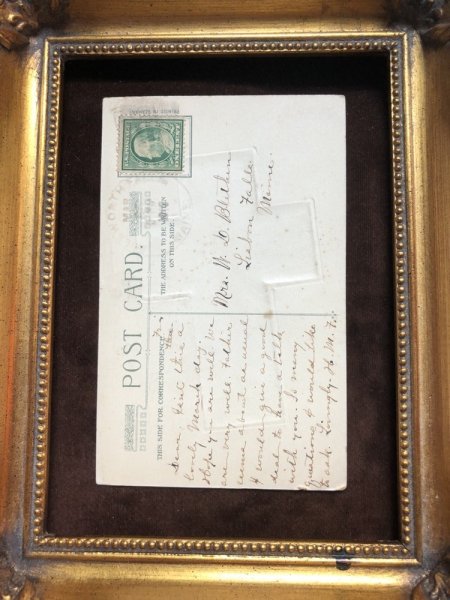 POST CARD.
THIS SIDE FOR CORRESPONDENCE
THE ADDRESS TO BE WRITTEN
ON THIS SIDE
MAR
Mrs. W. D.
Lisbon Falls
Maine.
Dear
this a
lovely March day.
Hope you are well. We
are very well. Father
about as usual
I would give a good
deal to have a talk
with you. So many
questions I would like
to ask. Lovingly, H. M. F.